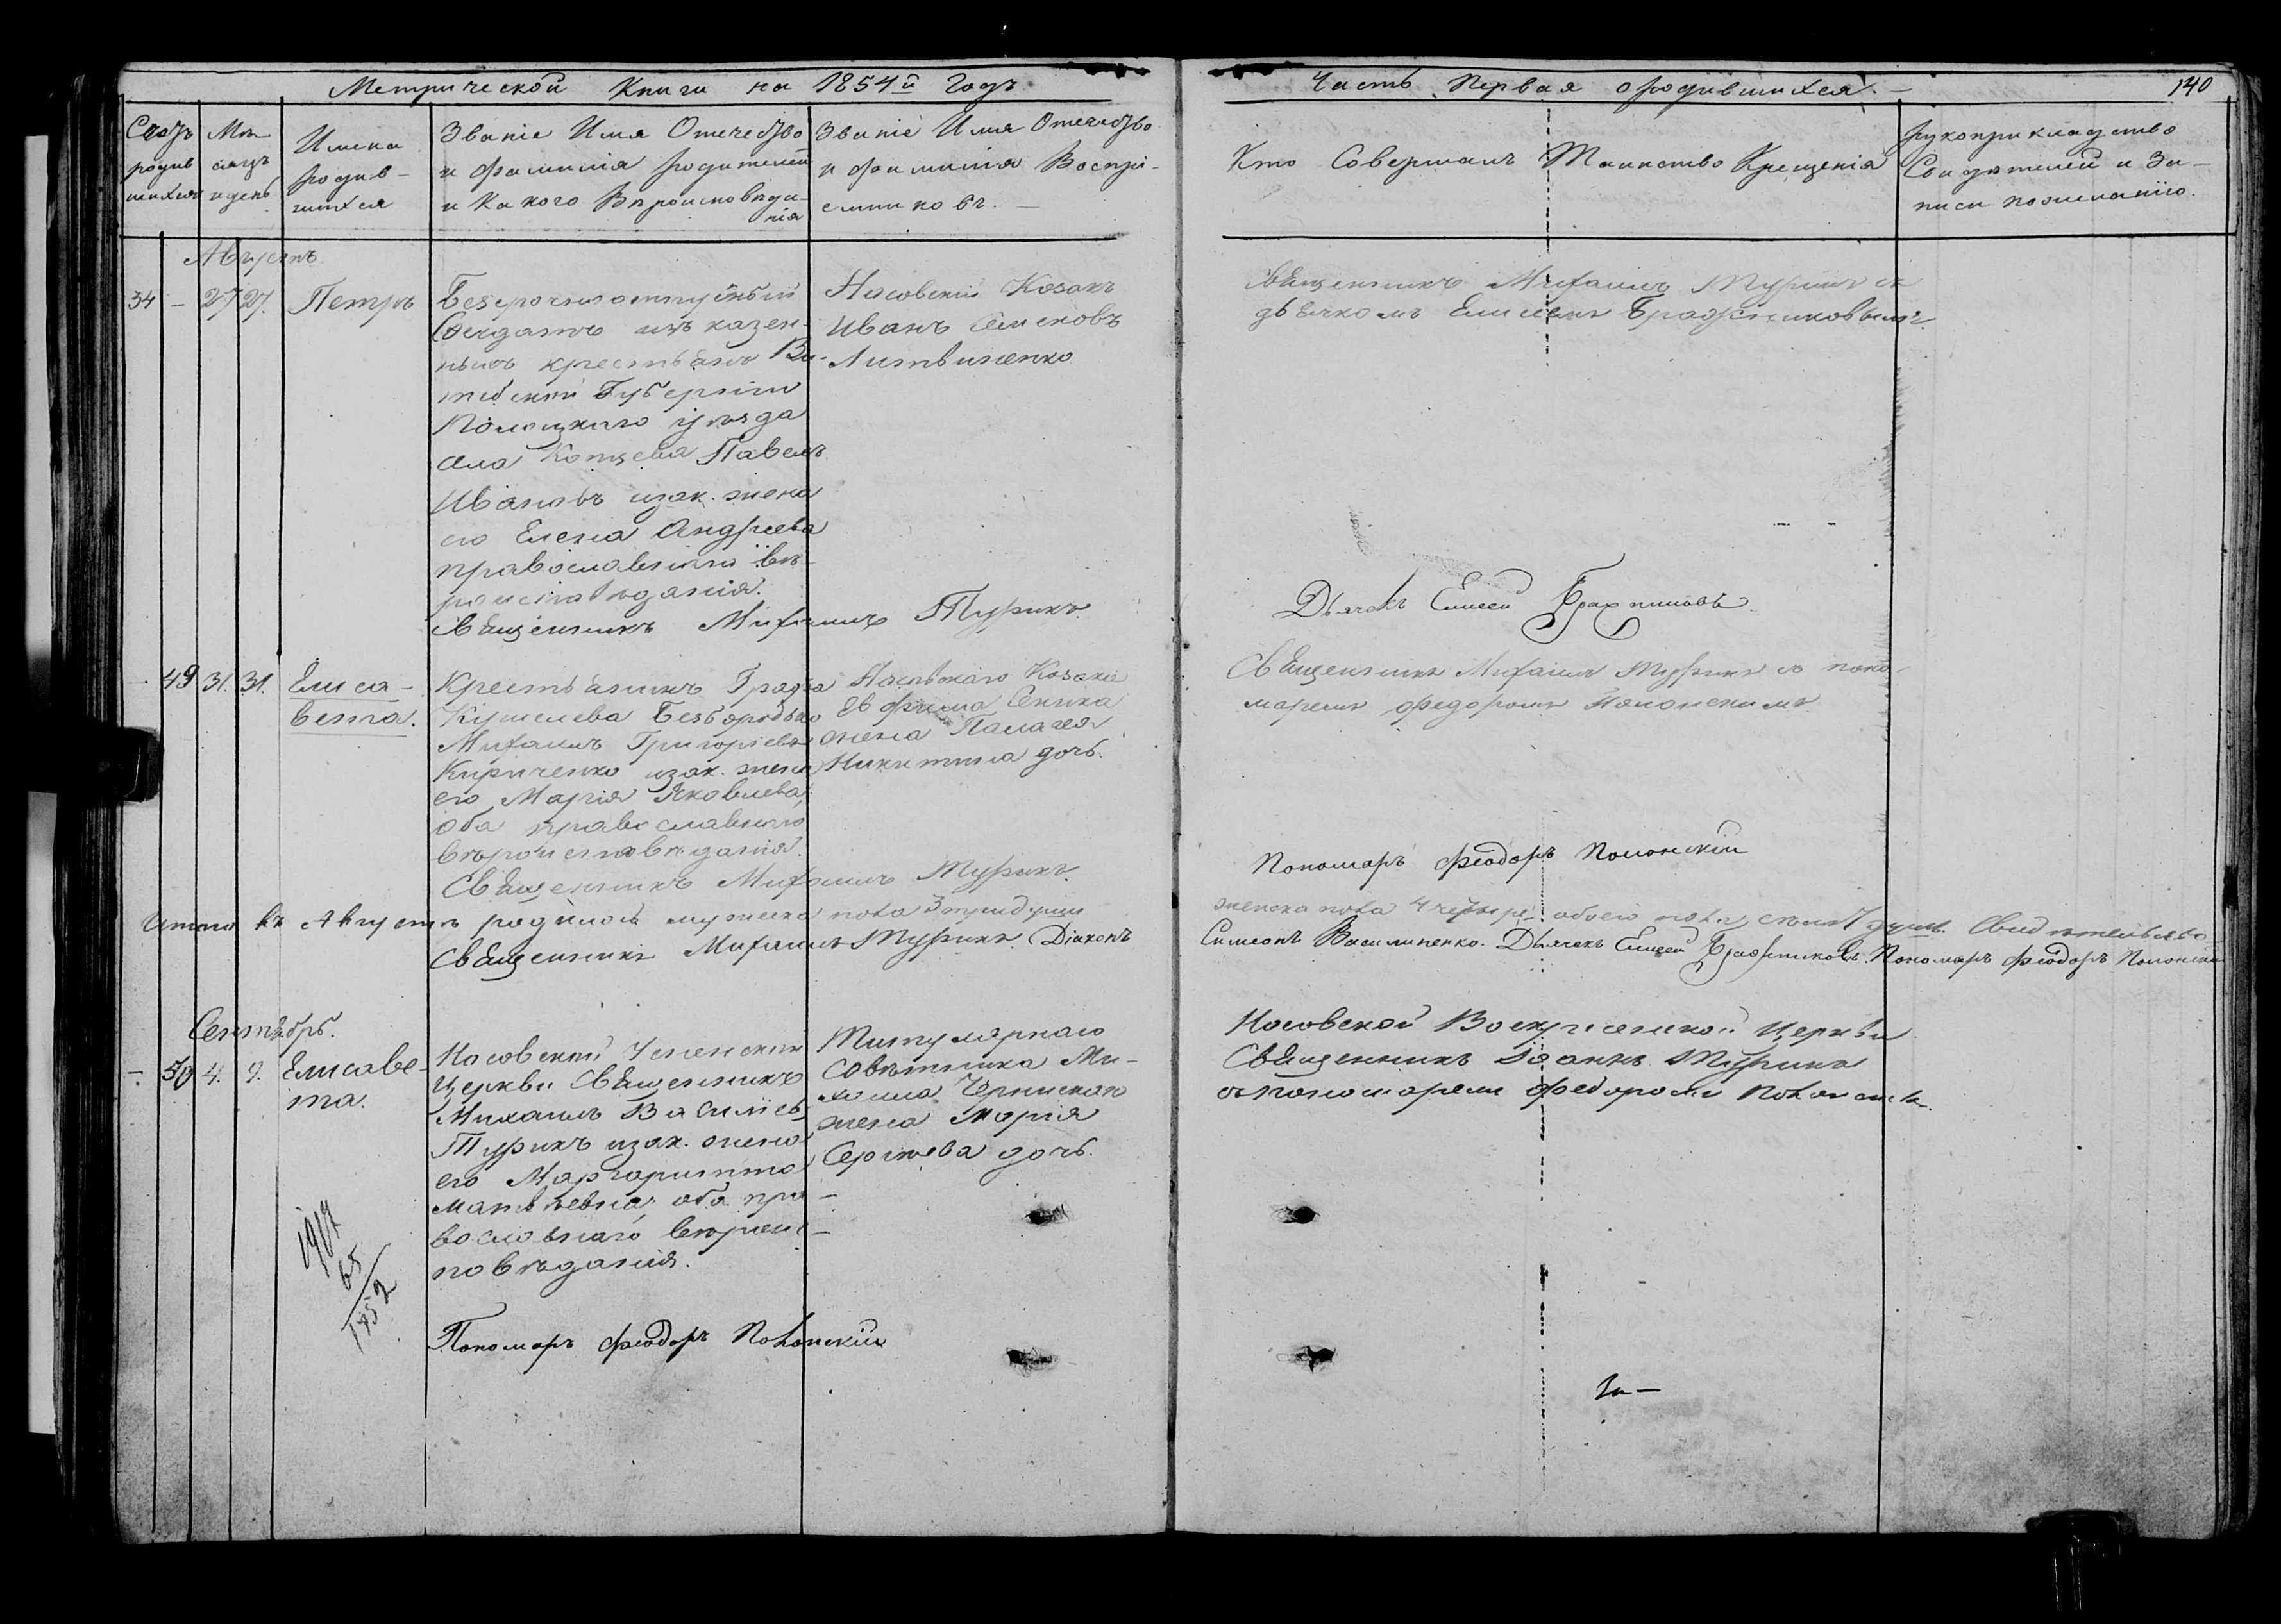 Метрической Книги на 1854й Годъ
Часть Первая о родившихся.
140
Счотъ родив шихся
Мѣ сяцъ и день
Имена родив- шихся
Званіе Имя Отечество
и фамилія родителей
и Какого Вѣроисповѣда-
нія
Званіе Имя Отечество
и фамилія Воспрі-
емниковъ.
Кто Совершалъ Таинство Крещенія
рукоприкладство
Свидѣтелей и За-
писи по желанію.
Августъ
34 - 27 27. Петръ
Безсрочноотпускный
Солдатъ изъ казен-
ныхъ крестьянъ Ви-
тебской Губерніи
Полоцкаго уѣзда
села Павелъ
Ивановъ изак. жена
его Елена Андреева
православнаго вѣ-
роисповѣданія.
Священникъ Михаилъ Турикъ.
Носовскій Козакъ
Иванъ Семеновъ
Литвиненко
Священникъ Михаилъ Турикъ съ
дьячкомъ Елисеемъ Бражниковымъ.
Дьячокъ Елисей Бражниковъ
- 49 31. 31. Елиса-
вета.
Крестьянинъ Графа
Кушелева Безбородько
Михаилъ Григорьевъ
Кириченко изак. жена
его Марія Яковлева,
оба православнаго
вѣроисповѣданія.
Священникъ Михаилъ Турикъ.
Носовскаго Козака
Евфима Сеника
жена Палагея
Никитина дочь.
Священникъ Михаилъ Турикъ съ поно-
маремъ Федоромъ Полонскимъ
Пономарь Феодоръ Полонскій
Итого въ Августѣ родилось мужеска пола 3 три души
женска пола 4 четыре обоего пола семь 7 душъ. Свидѣтельство
Священникъ Михаилъ Турикъ. Діаконъ
Симеонъ Василиненко. Дьячекъ Елисей Бражниковъ. Пономарь Феодоръ Полонскій
Сентябрь.
- 50 4. 9. Елисаве-
та.
Носовской Успенской
Церкви Священникъ
Михаилъ Василіевъ
Турикъ изак. жена
его Маргарита
Матвѣевна, оба пра-
вославнаго вѣроис-
повѣданія.
Пономарь Феодоръ Полонскій
Титулярнаго
Совѣтника Ми-
хаила
жена Марія
Сергѣева дочь.
Носовской Воскресенской Церкви
Священникъ Іоаннъ Турикъ
съ пономаремъ Федоромъ Полонскимъ.
1917
65
1852
За-